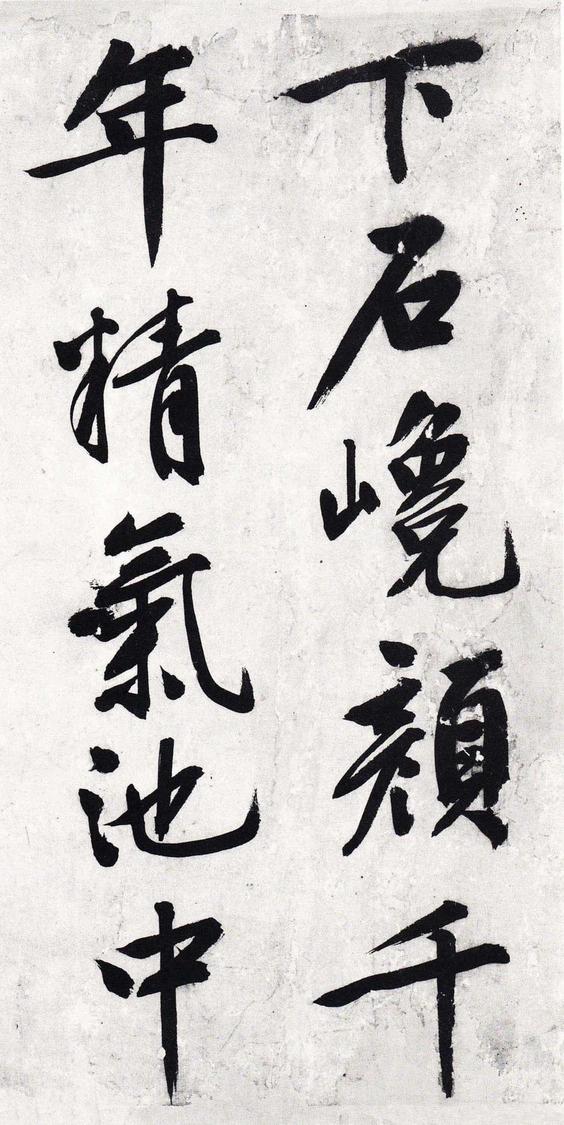 下石巉顔千
年精氣池中